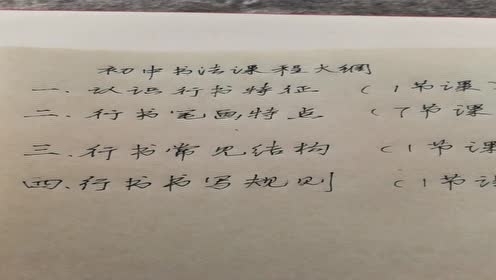 初中书法课程大纲
一.认识行书特征 (1节课
二.行书笔画特点 (7节课
三.行书常见结构 (1节课
四.行书书写规则 (1节课